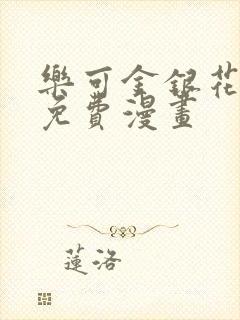 樂可金銀花
免費漫畫
蓮洛